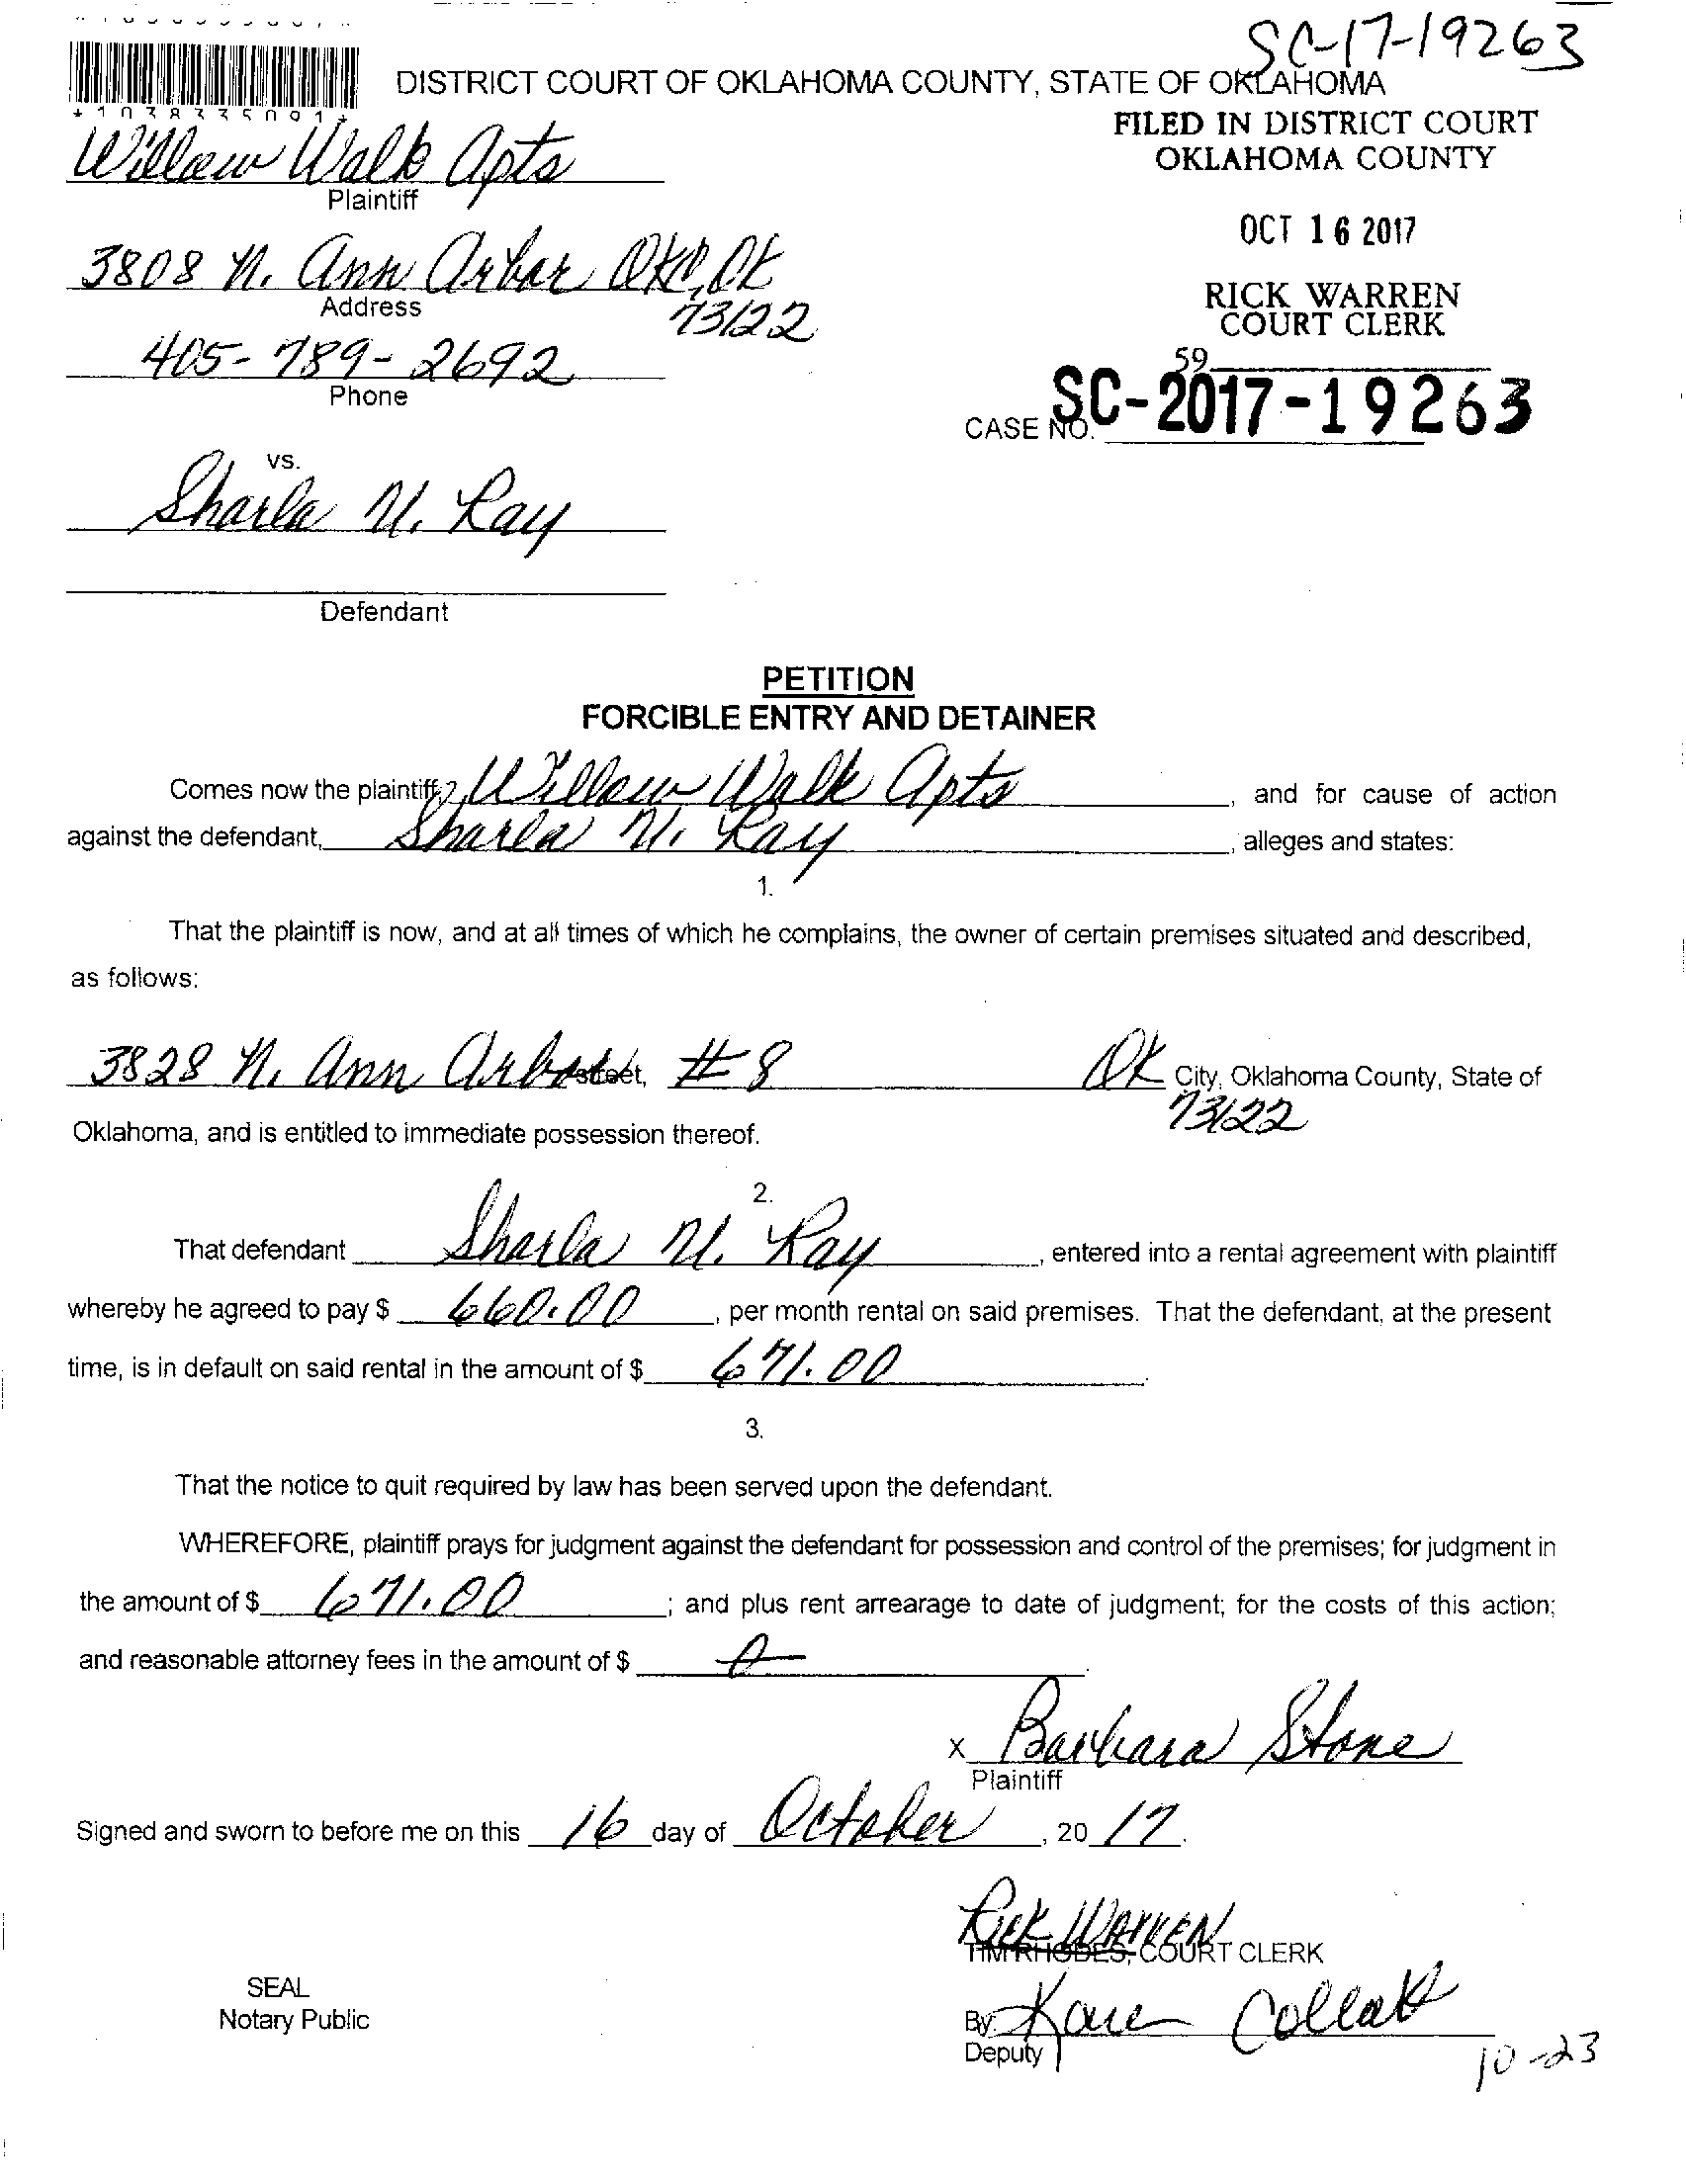 SC-17-19263
DISTRICT COURT OF OKLAHOMA COUNTY, STATE OF OKLAHOMA
* 1 0 3 8 3 3 5 0 9 1 *
FILED IN DISTRICT COURT
OKLAHOMA COUNTY
Willow Walk Apts
Plaintiff
OCT 16 2017
3808 N. Ann Arbor OKC, OK
Address
73122
RICK WARREN
COURT CLERK
405-789-2692
Phone
59
CASE NO. SC-2017-19263
vs.
Sharla N. Ray
Defendant
PETITION
FORCIBLE ENTRY AND DETAINER
Comes now the plaintiff, Willow Walk Apts, and for cause of action
against the defendant, Sharla N. Ray, alleges and states:
1.
That the plaintiff is now, and at all times of which he complains, the owner of certain premises situated and described,
as follows:
3828 N. Ann Arbor Street, #8 OK City, Oklahoma County, State of
73122
Oklahoma, and is entitled to immediate possession thereof.
2.
That defendant Sharla N. Ray, entered into a rental agreement with plaintiff
whereby he agreed to pay $ 660.00, per month rental on said premises. That the defendant, at the present
time, is in default on said rental in the amount of $ 671.00.
3.
That the notice to quit required by law has been served upon the defendant.
WHEREFORE, plaintiff prays for judgment against the defendant for possession and control of the premises; for judgment in
the amount of $ 671.00; and plus rent arrearage to date of judgment; for the costs of this action;
and reasonable attorney fees in the amount of $ 0.
x Barbara Stone
Plaintiff
Signed and sworn to before me on this 16 day of October, 20 17.
Rick WARREN
TIM RHODES, COURT CLERK
SEAL
Notary Public
By: Karen
Deputy
10-23